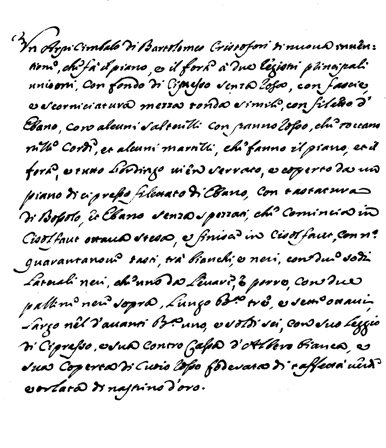 Un Arpi Cimbalo di Bartolomeo Cristofori di nuova inven-
tione, che fa' il piano, e il forte, a due registri principali
unisoni, con fondo di Cipresso senza rosa, con fascie,
e scorniciatura mezza tonda simile, con filetto d'
Ebano, con alcuni salterelli con panno rosso, che toccano
nelle corde, et alcuni martelli, che fanno il piano, et il
forte, e tutto l'ordingo vien serrato, e coperto da un
piano di cipresso filettato di Ebano, con tastatura
di Bossolo, et Ebano senza spezzati, che comincia in
Cisolfaut ottava stesa, e finisce in cisolfaut, con n.o
quarantanove tasti, trà bianchi, e neri, con due sodi
Laterali neri, che uno da Levare, e porre, con due
palline nere sopra, Lungo B.a tre, e sette ottavi,
Largo nel d'avanti B.a uno, e soldi sei, con suo Leggio
di Cipresso, e sua contro Cassa d'Albero bianca, e
sua Coperta di Cuoio rosso foderata di taffettà verde
e orlata di nastrino d'oro.